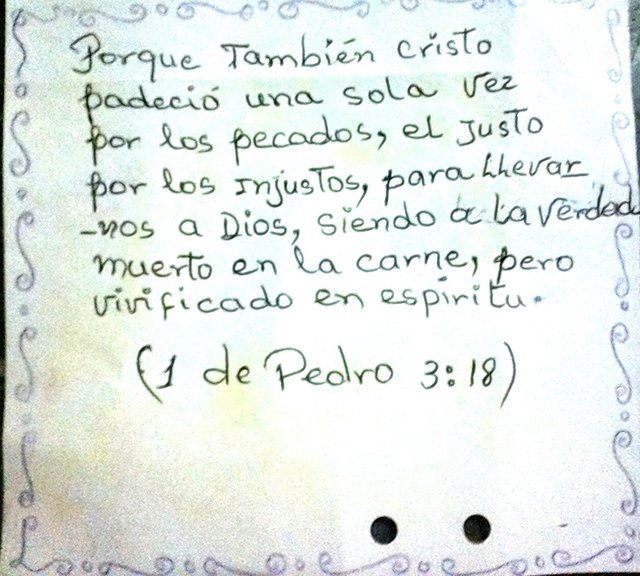 Porque También cristo
padeció una sola vez
por los pecados, el Justo
por los InjusTos, para LLevar
-nos a Dios, siendo a La verdad
muerto en la carne, pero
vivificado en espíritu.
(1 de Pedro 3:18)